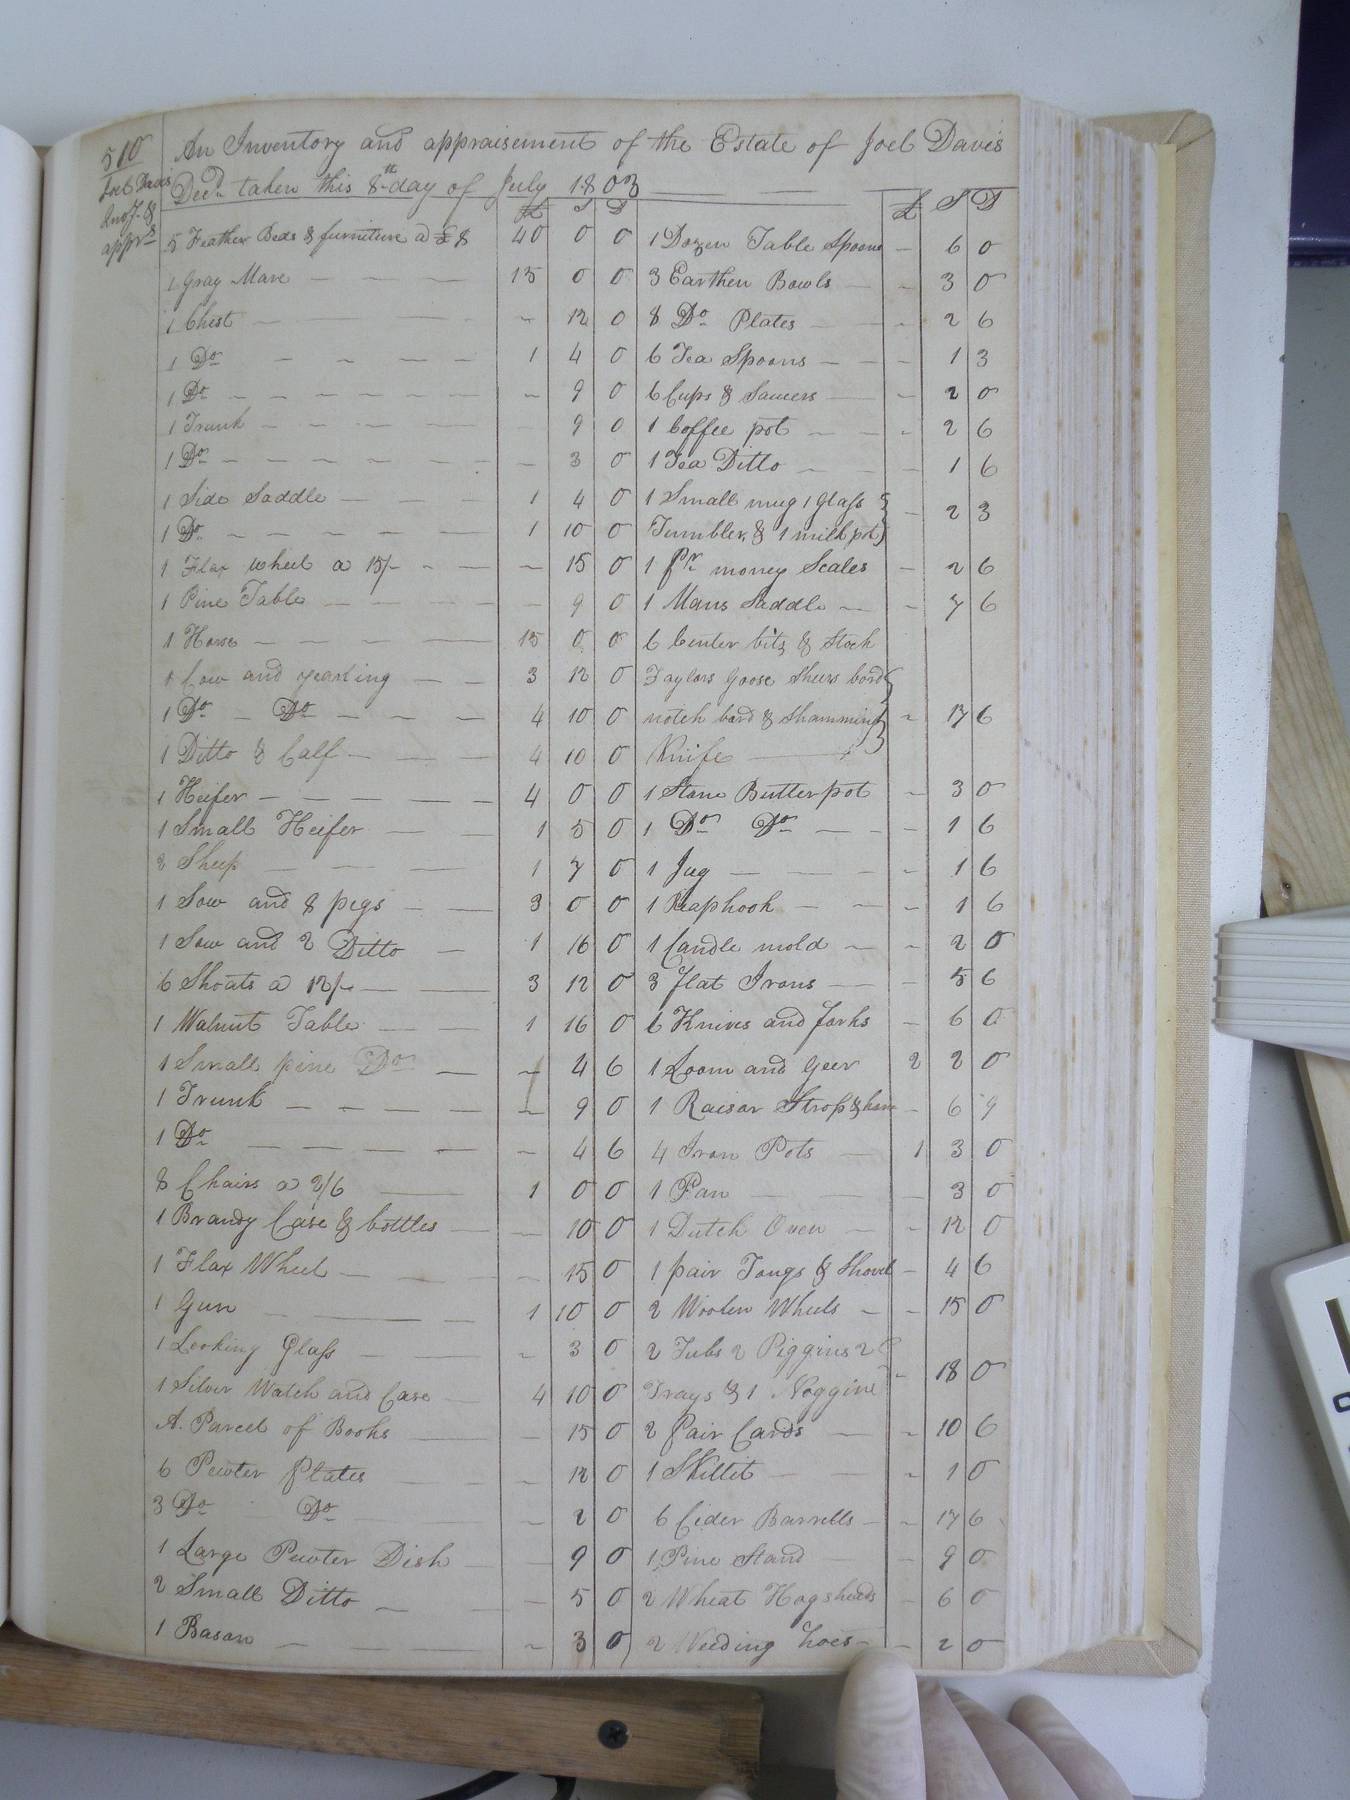 510
Joel Davis
Invy. &
apprs.
An Inventory and appraisement of the Estate of Joel Davis
Decd. taken this 8th day of July 1803
£ S D
5 Feather Beds & furniture a £8 40 0 0
1 Gray Mare 15 0 0
1 Chest - 12 0
1 Do 1 4 0
1 Do - 9 0
1 Trunk - 9 0
1 Do - 3 0
1 Side Saddle 1 4 0
1 Do 1 10 0
1 Flax wheel a 15/- - 15 0
1 Pine Table - 9 0
1 Horse 15 0 0
1 Cow and yearling 3 12 0
1 Do Do 4 10 0
1 Ditto & Calf 4 10 0
1 Heifer 4 0 0
1 Small Heifer 1 5 0
2 Sheep 1 7 0
1 Sow and 8 pigs 3 0 0
1 Sow and 2 Ditto 1 16 0
6 Shoats a 12/- 3 12 0
1 Walnut Table 1 16 0
1 Small pine Do - 4 6
1 Trunk - 9 0
1 Do - 4 6
8 Chairs a 2/6 1 0 0
1 Brandy Case & bottles - 10 0
1 Flax Wheel - 15 0
1 Gun 1 10 0
1 Looking Glass - 3 0
1 Silver Watch and Case 4 10 0
A Parcel of Books - 15 0
6 Pewter plates - 12 0
3 Do Do - 2 0
1 Large Pewter Dish - 9 0
2 Small Ditto - 5 0
1 Bason - 3 0
£ S D
1 Dozen Table Spoons - 6 0
3 Earthen Bowls - 3 0
8 Do Plates - 2 6
6 Tea Spoons - 1 3
6 Cups & Saucers - 2 0
1 Coffee pot - 2 6
1 Tea Ditto - 1 6
1 Small mug 1 Glass
Tumbler, & 1 milk pot - 2 3
1 pr money Scales - 2 6
1 Mans Saddle - 7 6
6 Center bits & Stock
Taylors Goose Shears bord
notch bord & Shamming - 17 6
Knife
1 Stone Butter pot - 3 0
1 Do Do - 1 6
1 Jug - 1 6
1 Reaphook - 1 6
1 Candle mold - 2 0
3 flat Irons - 5 6
6 Knives and forks - 6 0
1 Loom and Geer 2 2 0
1 Raisor Strop & hone - 6 9
4 Iron Pots 1 3 0
1 Pan - 3 0
1 Dutch Oven - 12 0
1 pair Tongs & Shovel - 4 6
2 Woolen Wheels - 15 0
2 Tubs 2 Piggins 2
Trays & 1 Noggine - 18 0
2 pair Cards - 10 6
1 Skillit - 1 0
6 Cider Barrells - 17 6
1 Pine Stand - 9 0
2 Wheat Hogsheads - 6 0
2 Weeding hoes - 2 0